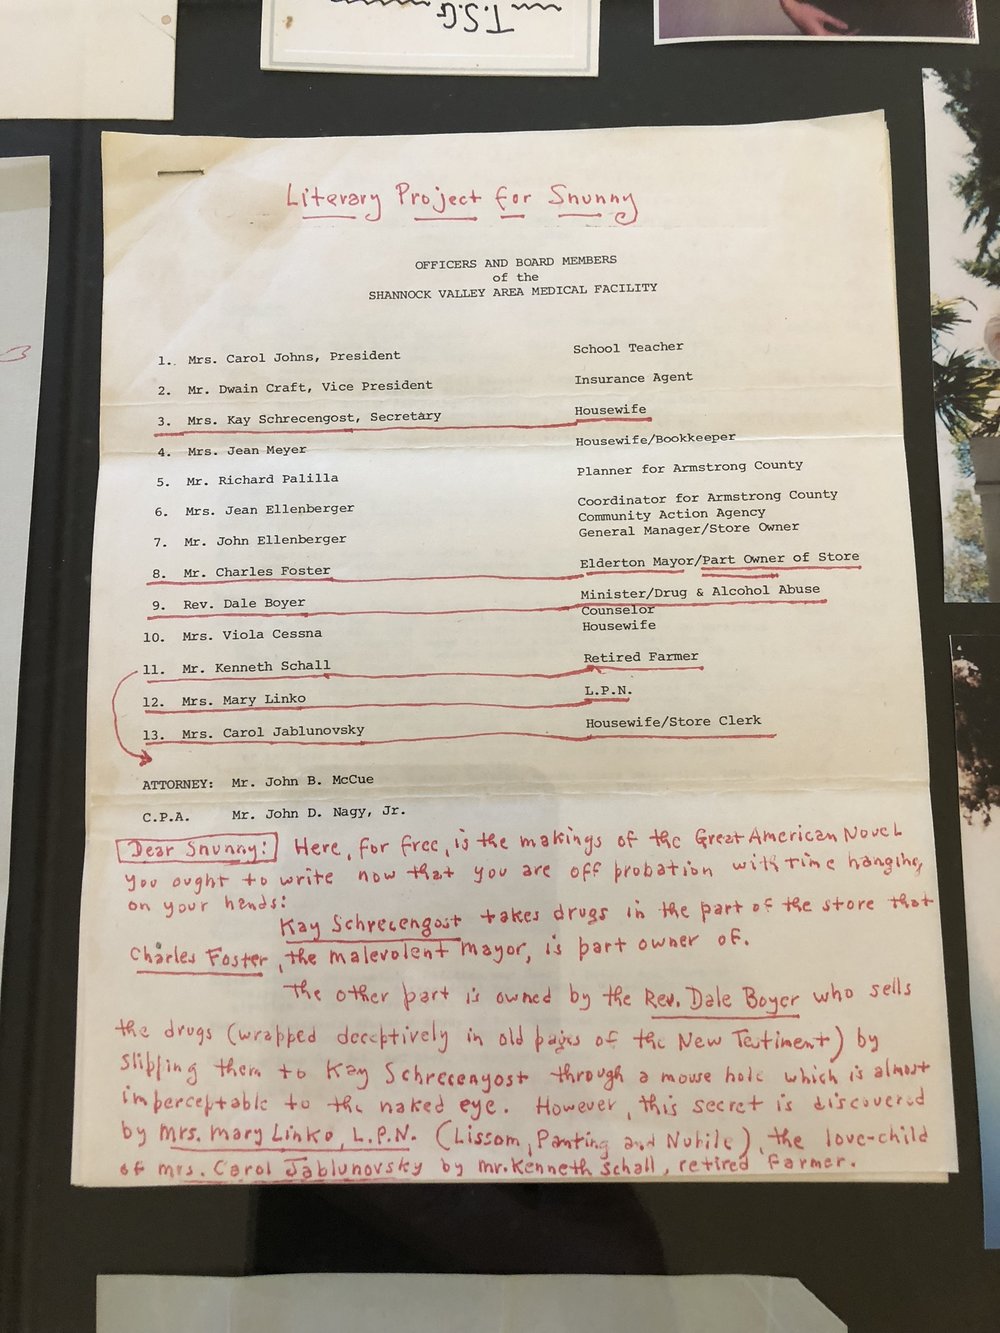 T.S.G
Literary Project for Snunny
OFFICERS AND BOARD MEMBERS
of the
SHANNOCK VALLEY AREA MEDICAL FACILITY
1. Mrs. Carol Johns, President School Teacher
2. Mr. Dwain Craft, Vice President Insurance Agent
3. Mrs. Kay Schrecengost, Secretary Housewife
4. Mrs. Jean Meyer Housewife/Bookkeeper
5. Mr. Richard Palilla Planner for Armstrong County
6. Mrs. Jean Ellenberger Coordinator for Armstrong County
Community Action Agency
7. Mr. John Ellenberger General Manager/Store Owner
8. Mr. Charles Foster Elderton Mayor/Part Owner of Store
9. Rev. Dale Boyer Minister/Drug & Alcohol Abuse
Counselor
10. Mrs. Viola Cessna Housewife
11. Mr. Kenneth Schall Retired Farmer
12. Mrs. Mary Linko L.P.N.
13. Mrs. Carol Jablunovsky Housewife/Store Clerk
ATTORNEY: Mr. John B. McCue
C.P.A. Mr. John D. Nagy, Jr.
Dear Snunny: Here, for free, is the makings of the Great American Novel
you ought to write now that you are off probation with time hanging
on your hands:
Kay Schrecengost takes drugs in the part of the store that
Charles Foster, the malevolent mayor, is part owner of.
The other part is owned by the Rev. Dale Boyer who sells
the drugs (wrapped deceptively in old pages of the New Testiment) by
slipping them to Kay Schrecenyost through a mouse hole which is almost
imperceptable to the naked eye. However, this secret is discovered
by Mrs. Mary Linko, L.P.N. (Lissom, Panting and Nubile), the love-child
of mrs. Carol Jablunovsky by mr. Kenneth Schall, retired farmer.